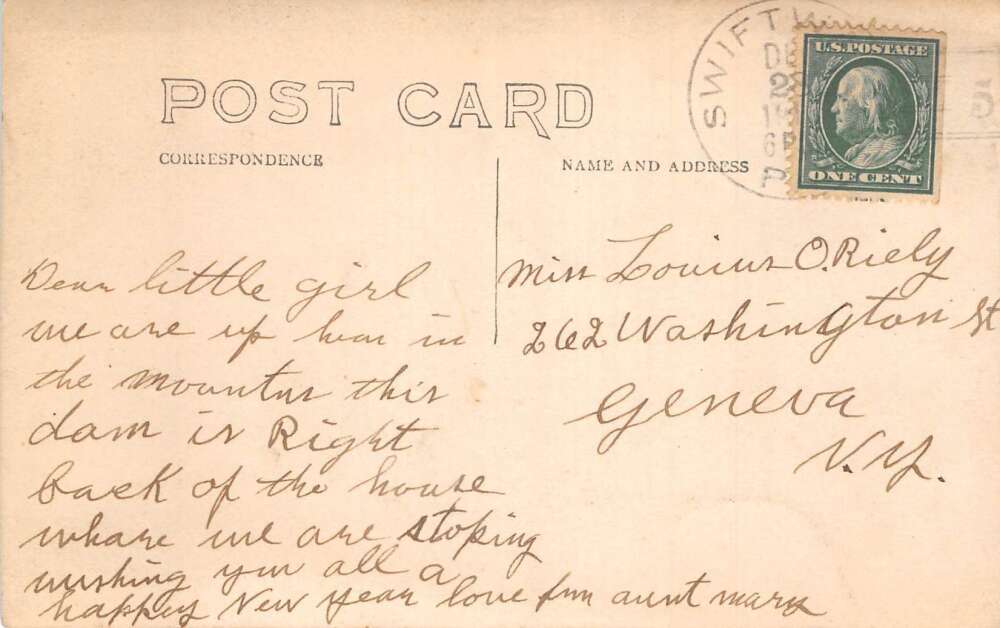 POST CARD
CORRESPONDENCE
NAME AND ADDRESS
SWIFT
DE
28
19
6P
U.S. POSTAGE
ONE CENT
5
Dear little girl
we are up hear in
the mountns this
dam is Right
back of the house
whare we are stoping
wishing you all a
happey New year love frm aunt mary
Miss Louius O.Riely
262 Washington St
Geneva
N.Y.